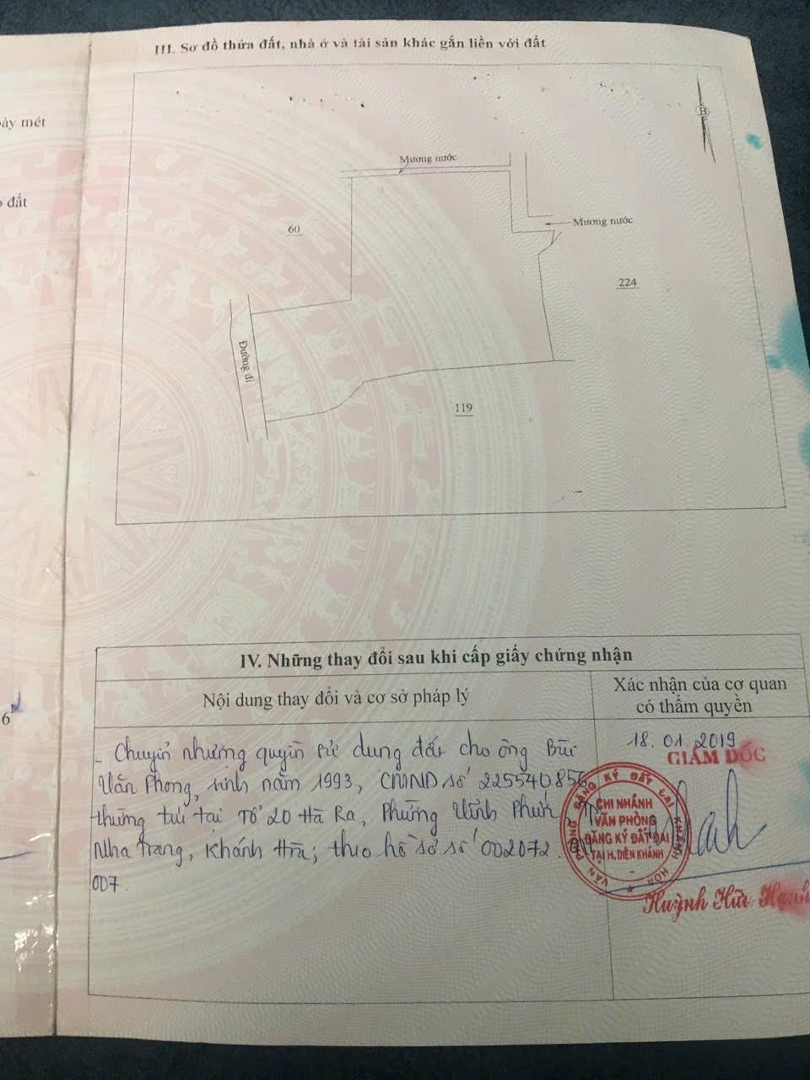 III. Sơ đồ thửa đất, nhà ở và tài sản khác gắn liền với đất
ảy mét
đất
B
Mương nước
Mương nước
60
224
Đường đi
119
6
IV. Những thay đổi sau khi cấp giấy chứng nhận
Nội dung thay đổi và cơ sở pháp lý
Xác nhận của cơ quan
có thẩm quyền
- Chuyển nhượng quyền sử dụng đất cho ông Bùi
Văn Phong, sinh năm 1993, CMND số 225540856
thường trú tại Tổ 20 Hà Ra, Phường Vĩnh Phước
Nha Trang, Khánh Hòa; theo hồ sơ số 002072.
007.
18.01.2019
GIÁM ĐỐC
VĂN PHÒNG ĐĂNG KÝ ĐẤT ĐAI KHÁNH HÒA
CHI NHÁNH
VĂN PHÒNG
ĐĂNG KÝ ĐẤT ĐAI
TẠI H. DIÊN KHÁNH
Huỳnh Hữu